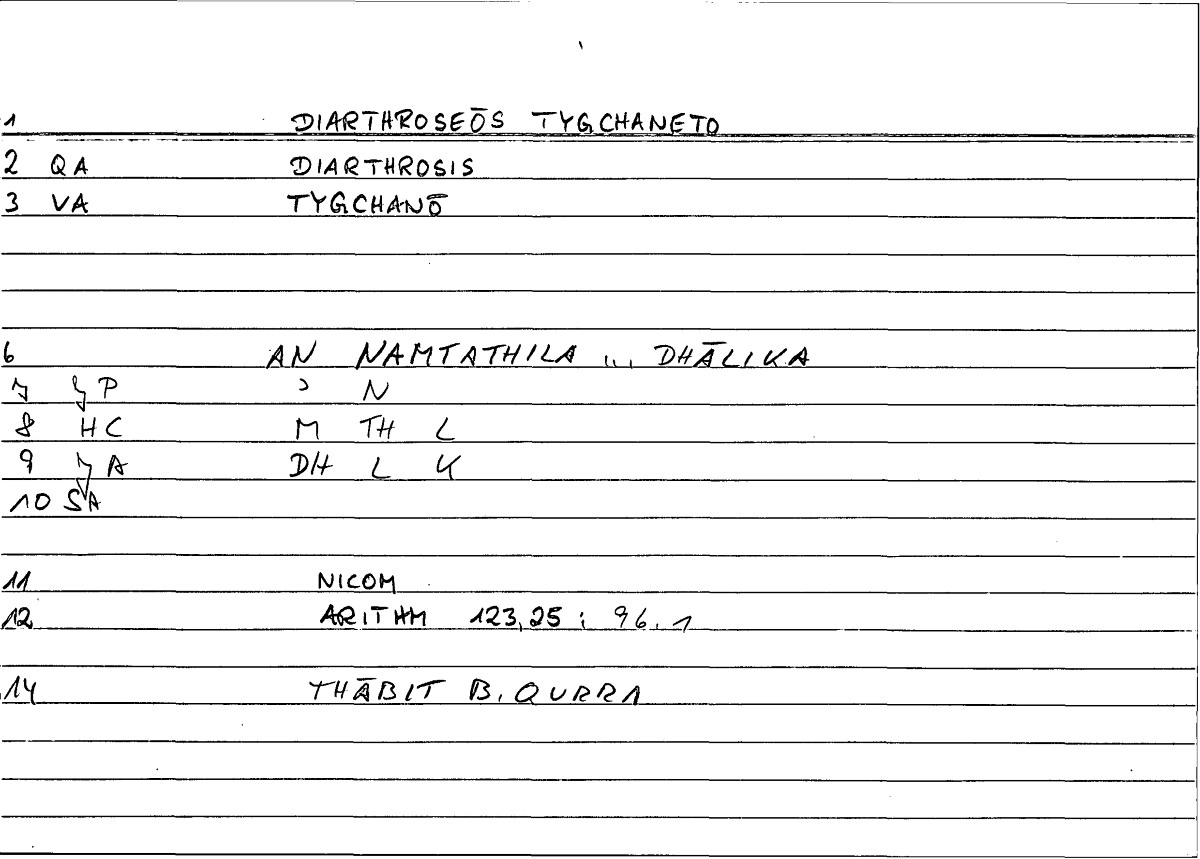 1 DIARTHROSEŌS TYGCHANETO
2 QA DIARTHROSIS
3 VA TYGCHANŌ
6 AN NAMTATHILA ... DHĀLIKA
7 P ʾ N
8 HC M TH L
9 A DH L K
10 SA
11 NICOM
12 ARITHM 123,25 ; 96,1
14 THĀBIT B. QURRA